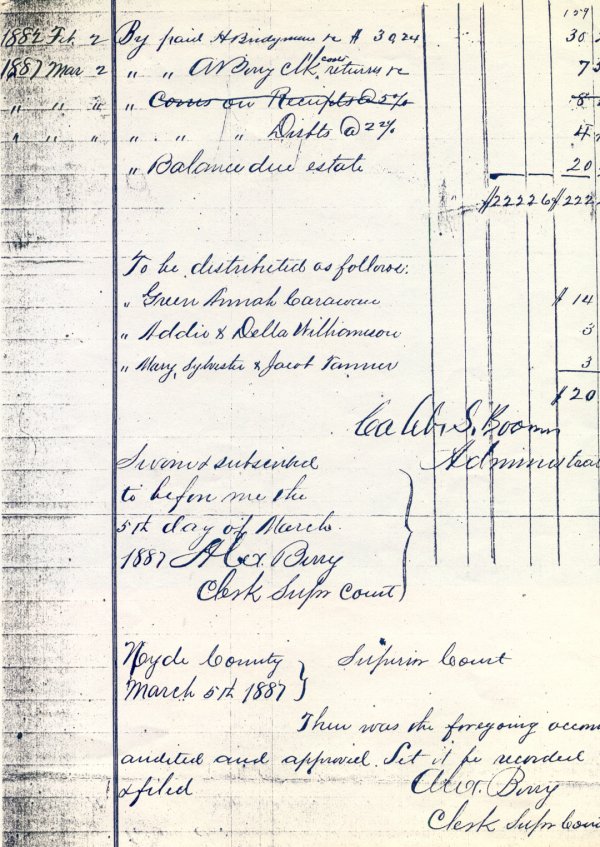 159
1887 Feb 2 By paid A Bridgman rc $ 30,24 30
1887 Mar 2 " " A Berry Clk cost, returns rc 7
" " " " Coms on Receipts @ 5% 8
" " " " " " Disbts @ 2 2% 4
" Balance due estate 20
$222 26 $222
To be distributed as follows:
" Green Annah Carawan $ 14
" Addie & Della Williamson 3
" Mary, Sylvester & Jacob Tanner 3
$ 20
Caleb S. Boomer
Administrat
Sworn & subscribed
to before me the
5th day of March
1887 Alex. Berry
Clerk Supr Court
Hyde County } Superior Court
March 5th 1887 }
Then was the foregoing accou
audited and approved. Let it be recorded
& filed
Alex. Berry
Clerk Supr Cour